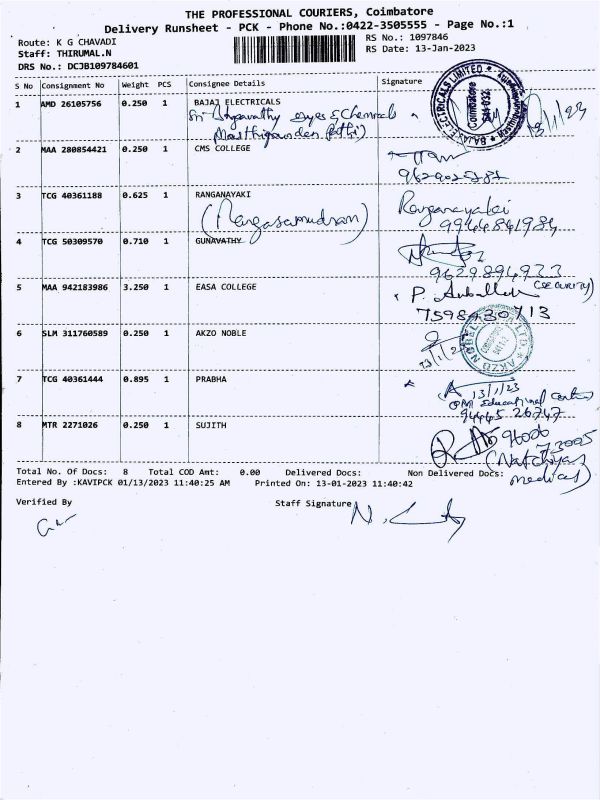 THE PROFESSIONAL COURIERS, Coimbatore
Delivery Runsheet - PCK - Phone No.:0422-3505555 - Page No.:1
Route: K G CHAVADI
RS No.: 1097846
Staff: THIRUMAL.N
RS Date: 13-Jan-2023
DRS No.: DCJB109784601
S No Consignment No Weight PCS Consignee Details Signature
1 AMD 26105756 0.250 1 BAJAJ ELECTRICALS
BAJAJ ELECTRICALS LIMITED
Coimbatore
641 032
13/1/23
2 MAA 280854421 0.250 1 CMS COLLEGE
3 TCG 40361188 0.625 1 RANGANAYAKI
Ranganayaki
(Rangasamudram)
9944841984
4 TCG 50309570 0.710 1 GUNAVATHY
9629894933
5 MAA 942183986 3.250 1 EASA COLLEGE
(SECURITY)
6 SLM 311760589 0.250 1 AKZO NOBLE
13/1/2
7 TCG 40361444 0.895 1 PRABHA
13/1/23
Educational
94445 26747
8 MTR 2271026 0.250 1 SUJITH
96006
73005
(Natchiyar
medical)
Total No. Of Docs: 8 Total COD Amt: 0.00 Delivered Docs: Non Delivered Docs:
Entered By :KAVIPCK 01/13/2023 11:40:25 AM Printed On: 13-01-2023 11:40:42
Verified By Staff Signature